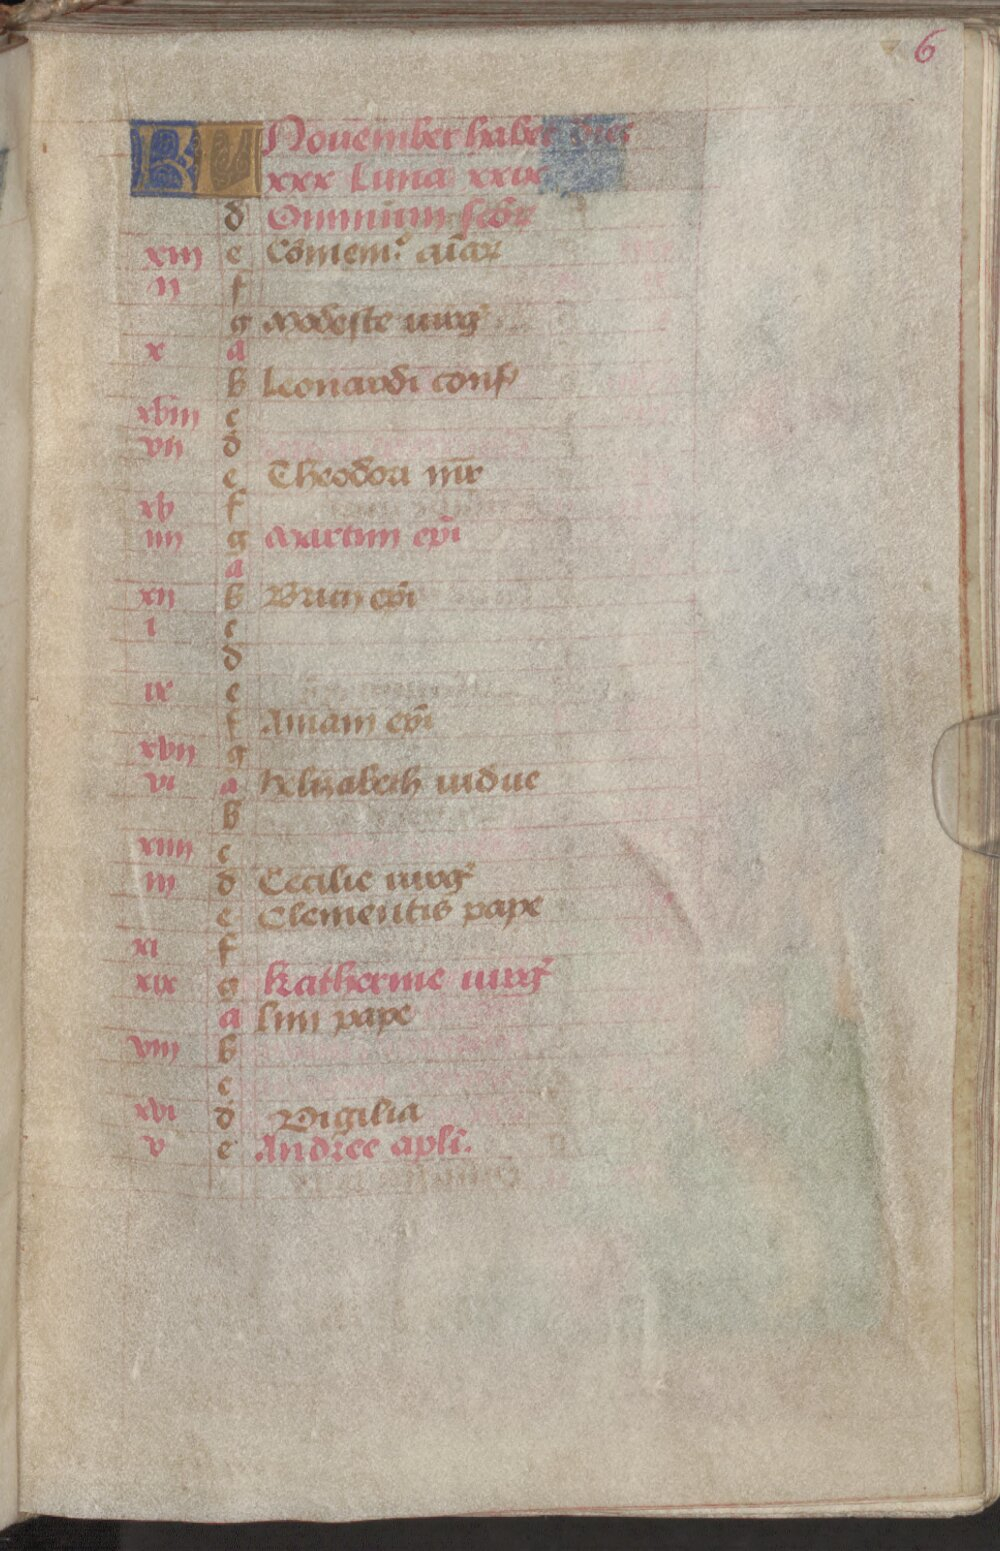 6
KL Nouember habet dies
xxx Luna xxix
d Omnium scõr
xiii e Cõmem.º aiãr
ii f
g Modeste uirg̃
x a
b Leonardi conf̃
xviii c
vii d
e Theodori mr̃
xv f
iiii g Martini ep̃i
a
xii b Bricii ep̃i
i c
d
ix e
f Aniani ep̃i
xvii g
vi a Helizabeth uidue
b
xiiii c
iii d Cecilie uirg̃
e Clementis pape
xi f
xix g Katherine uirg̃
a Lini pape
viii b
c
xvi d Vigilia
v e Andree apl̃i.